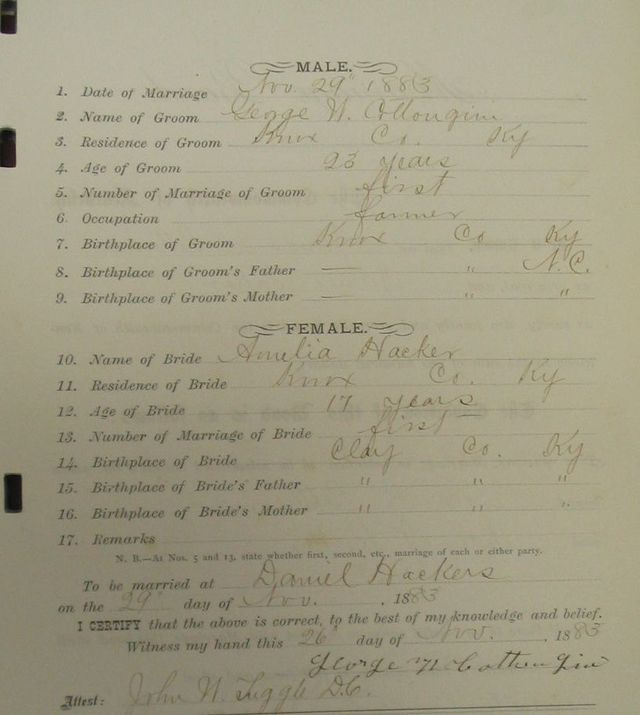 MALE.
1. Date of Marriage Nov. 29" 1883
2. Name of Groom W.
3. Residence of Groom Knox Co. Ky
4. Age of Groom 23 years
5. Number of Marriage of Groom first
6. Occupation farmer
7. Birthplace of Groom Knox Co Ky
8. Birthplace of Groom's Father — " N.C.
9. Birthplace of Groom's Mother — " "
FEMALE.
10. Name of Bride Amelia Hacker
11. Residence of Bride Knox Co. Ky
12. Age of Bride 17 years
13. Number of Marriage of Bride first
14. Birthplace of Bride Clay Co. Ky
15. Birthplace of Bride's Father " " "
16. Birthplace of Bride's Mother " " "
17. Remarks
N. B.—At Nos. 5 and 13, state whether first, second, etc., marriage of each or either party.
To be married at Daniel Hackers
on the 29" day of Nov. , 1883
I CERTIFY that the above is correct, to the best of my knowledge and belief.
Witness my hand this 26" day of Nov. , 1883
George
Attest: John W. Tuggle D.C.